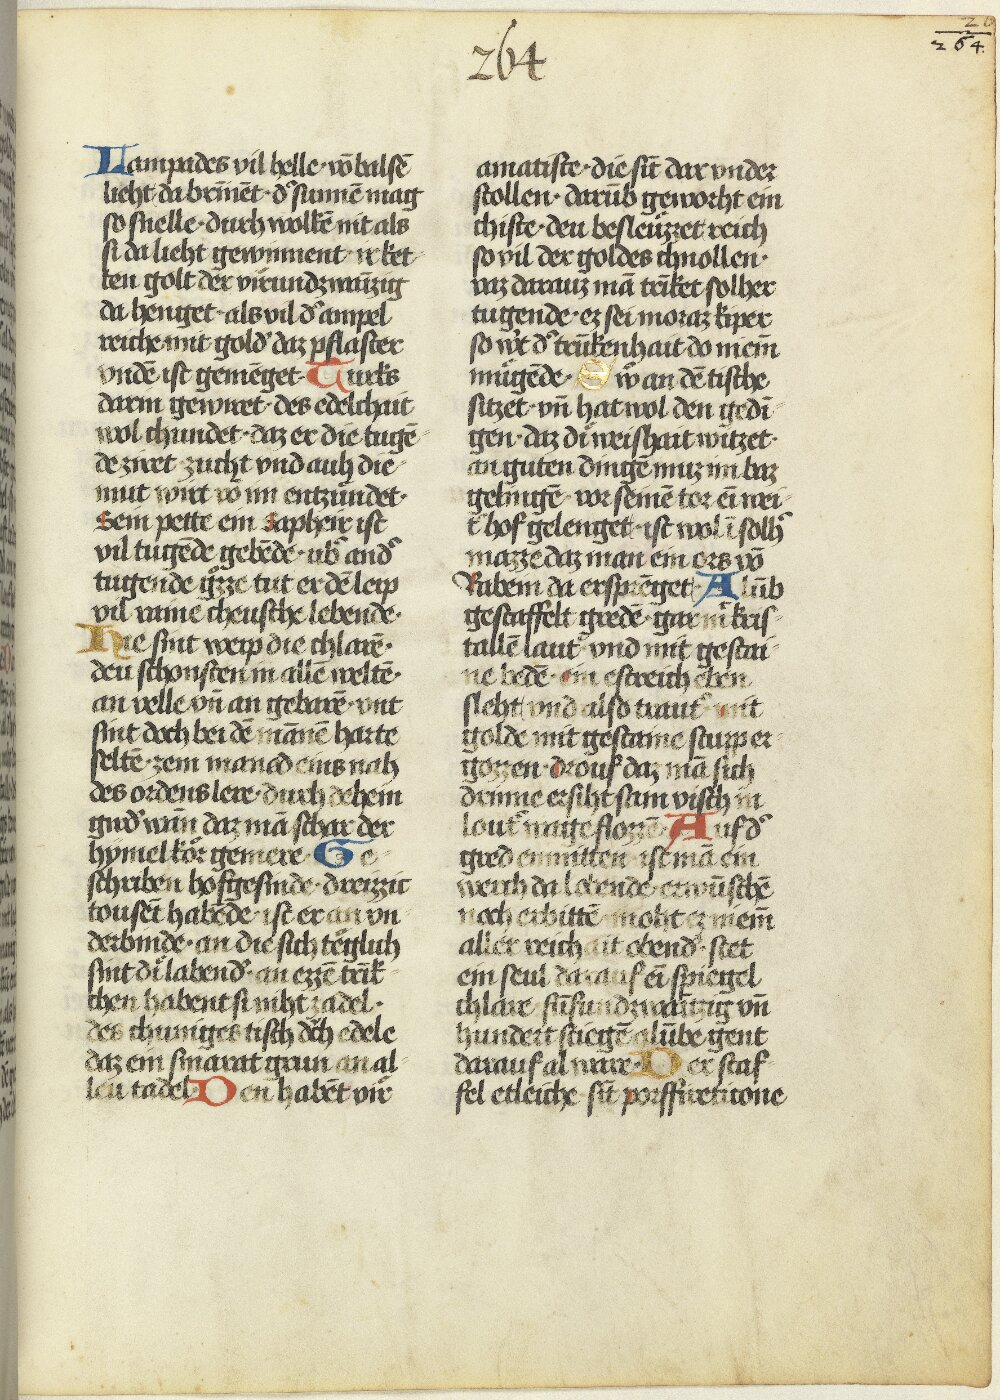 264
264
Lampades vil helle · vō balsē
lieht da brīnēt · d᷑ sunnē mag
so snelle · durch wolkē nit als
si da lieht gewinnent · ir ket
ten golt der vīrundzwāzig
da henget · als vil d᷑ ampel
reiche mit gold᷑ daz pflaster
vndē ist gemēget · Turkis
darin gewiret · des edelchait
wol chundet · daz er die tugē
de ziret · zucht vnd auh die
mut wirt vō im entzundet ·
Sein pette ein sapheir ist
vil tugēde gebēde · ub᷑ and᷑
tugende gͦzze tut er dē leip
vil raine cheusche lebende ·
Hie sint weip die chlarē ·
deu schonsten in allē weltē ·
an velle vn̄ an gebarē · vnt
sint doch bei dē mānē harte
seltē · zem maned eins nah
des ordens lere · durch dehein
gird᷑ wān daz mā schar der
hymel kōr gemere · Ge
schriben hofgesinde · dreizzic
tousēt habēde · ist er an vn
derbinde · an die sich tēglich
sint di labend᷑ · an ezzē trīk
chen habent si niht zadel ·
des chuniges tisch dͦch edele
daz ein smarat grun an al
leu tadel · Den habēt vir
amatiste · die sīt dar vnder
stollen · darūb geworht ein
chiste · deu besleuzzet reich
so vil der goldes chnollen ·
waz darauz mā trīket solher
tugende · ez sei moraz kiper
so wͦt d᷑ trūkenhait do niem̄
mūgēde · Sw an dē tische
sitzet · vn̄ hat wol den gedī
gen · daz di weishait witzet ·
an guten dingē muz im baz
gelingē · vor seinē tor eī wei
t᷑ hof gelenget · ist wol ī solh᷑
mazze daz man ein ors vō
Rabein da ersprēget · Al ūb
gestaffelt gredē · gar mͭ kris
tallē laut᷑ · vnd mit gestai
ne bedē · ein estreich eben
sleht vnd also traut᷑ · mit
golde mit gestaine sturp er
gozzen · drouf daz mā sich
drinne ersiht sam visch in
lout᷑ wage flozzē · Auf d᷑
gred enmitten · ist mā ein
werch da lobende · erwūschē
noch erbittē · moht ez niem̄
aller reichait obend᷑ · stet
ein seul darauf eī spiegel
chlare · fūfundzwāzig vn̄
hundert stiegē al ūbe gent
darauf al ware · Der staf
fel etleiche · sīt porffireticone